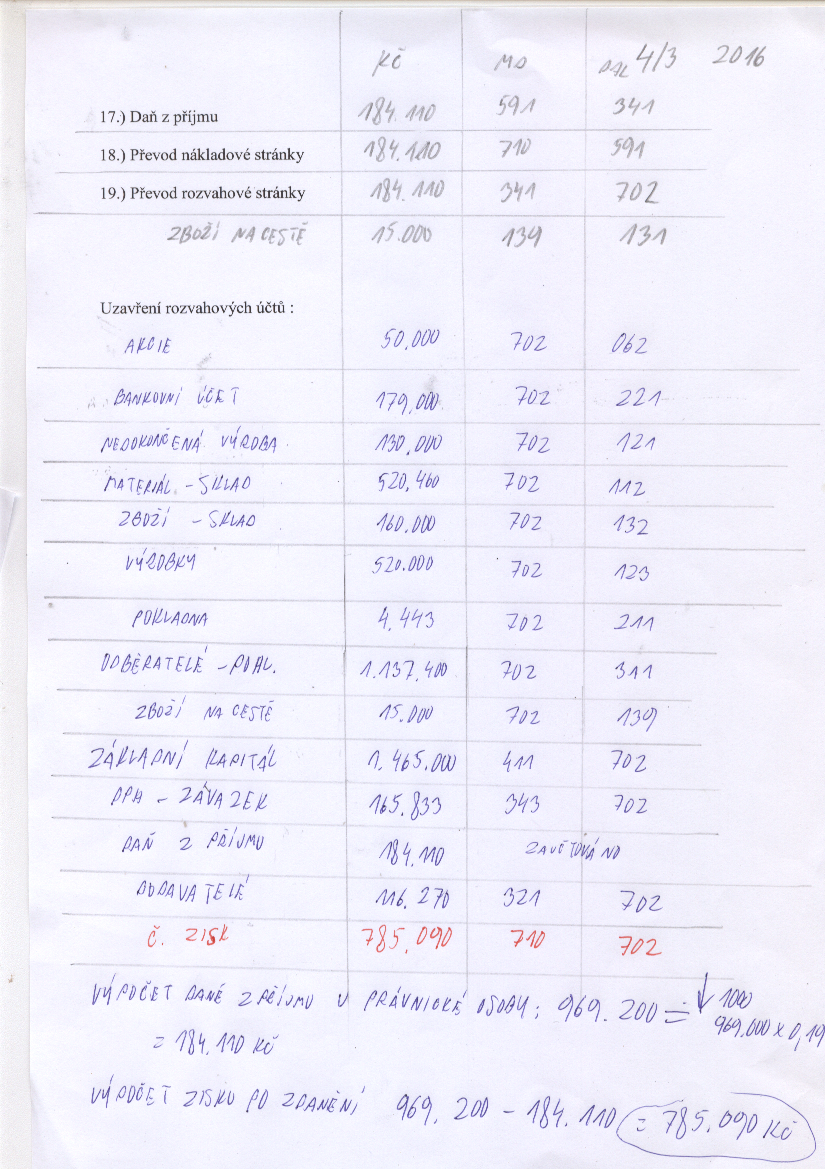 KČ MD DAL 4/3 2016
17.) Daň z příjmu 184.110 591 341
18.) Převod nákladové stránky 184.110 710 591
19.) Převod rozvahové stránky 184.110 341 702
ZBOŽÍ NA CESTĚ 15.000 139 131
Uzavření rozvahových účtů :
AKCIE 50.000 702 062
BANKOVNÍ ÚČET 179,000 702 221
NEDOKONČENÁ VÝROBA 130,000 702 121
MATERIÁL - SKLAD 520,460 702 112
ZBOŽÍ - SKLAD 160.000 702 132
VÝROBKY 520.000 702 123
POKLADNA 4.443 702 211
ODBĚRATELÉ - POHL. 1.137,400 702 311
ZBOŽÍ NA CESTĚ 15.000 702 139
ZÁKLADNÍ KAPITÁL 1.465.000 411 702
DPH - ZÁVAZEK 165.833 343 702
DAŇ Z PŘÍJMU 184.110 ZAÚČTOVÁNO
DODAVATELÉ 116.270 321 702
Č. ZISK 785.090 710 702
VÝPOČET DANĚ Z PŘÍJMU U PRÁVNICKÉ OSOBY: 969.200 ≐ ↓ 1000
969.000 x 0,19
= 184.110 KČ
VÝPOČET ZISKU PO ZDANĚNÍ 969.200 - 184.110 = 785.090 KČ